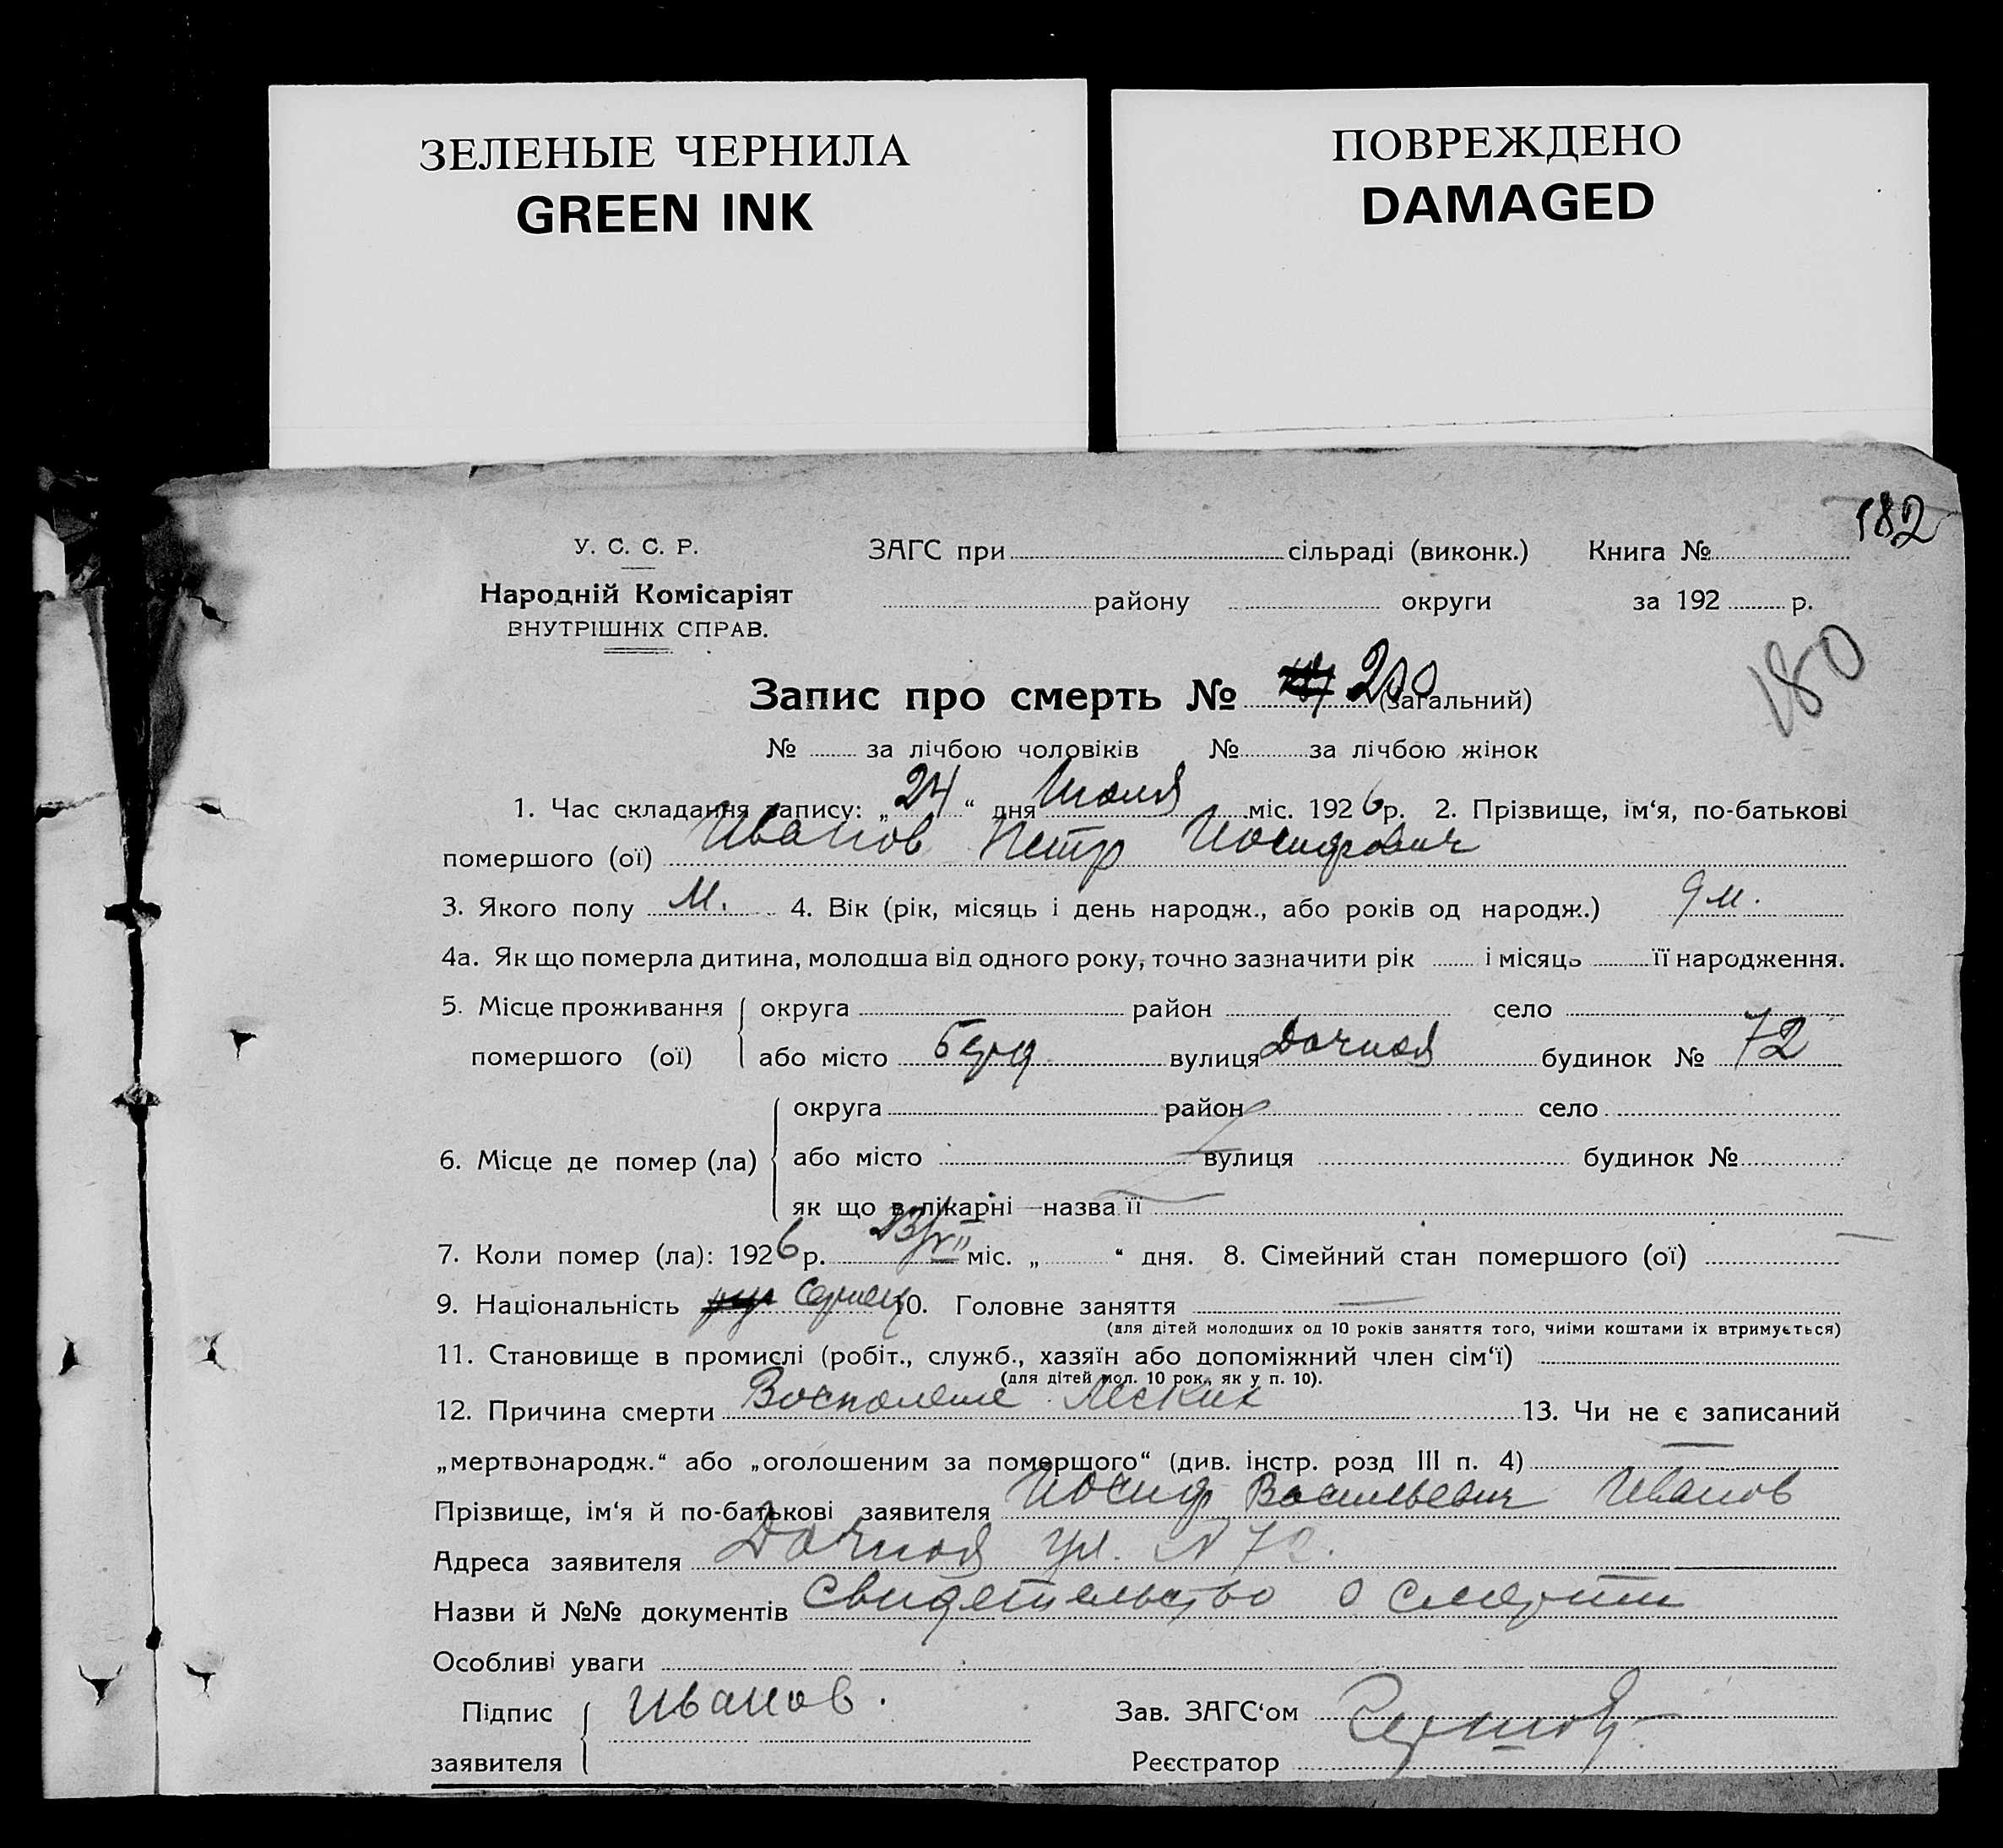 ЗЕЛЕНЫЕ ЧЕРНИЛА
GREEN INK
ПОВРЕЖДЕНО
DAMAGED
182
У. С. С. Р. ЗАГС при сільраді (виконк.) Книга №
Народній Комісаріят району округи за 192 р.
ВНУТРІШНІХ СПРАВ.
180
Запис про смерть № 200 (загальний)
№ за лічбою чоловіків № за лічбою жінок
1. Час складання запису: „24“ дня Июля міс. 1926 р. 2. Прізвище, ім‘я, по-батькові
помершого (ої) Иванов Петр Иосифович
3. Якого полу М. 4. Вік (рік, місяць і день народж., або років од народж.) 9 м.
4а. Як що померла дитина, молодша від одного року, точно зазначити рік і місяць її народження.
5. Місце проживання округа район село
помершого (ої) або місто вулиця Дачная будинок № 72
округа район село
6. Місце де помер (ла) або місто вулиця будинок №
як що в лікарні—назва її
7. Коли помер (ла): 1926 р. 23/VII міс. „ “ дня. 8. Сімейний стан помершого (ої) —
9. Національність 10. Головне заняття —
(для дітей молодших од 10 років заняття того, чиїми коштами їх втримується)
11. Становище в промислі (робіт., служб., хазяїн або допоміжний член сім‘ї)
(для дітей мол. 10 рок., як у п. 10).
12. Причина смерти Воспаление Легких 13. Чи не є записаний
„мертвонародж.“ або „оголошеним за помершого“ (див. інстр. розд III п. 4) —
Прізвище, ім‘я й по-батькові заявителя Иосиф Васильевич Иванов
Адреса заявителя Дачная ул. № 72.
Назви й №№ документів Свидетельство о смерти
Особливі уваги
Підпис Иванов. Зав. ЗАГС‘ом
заявителя Реєстратор